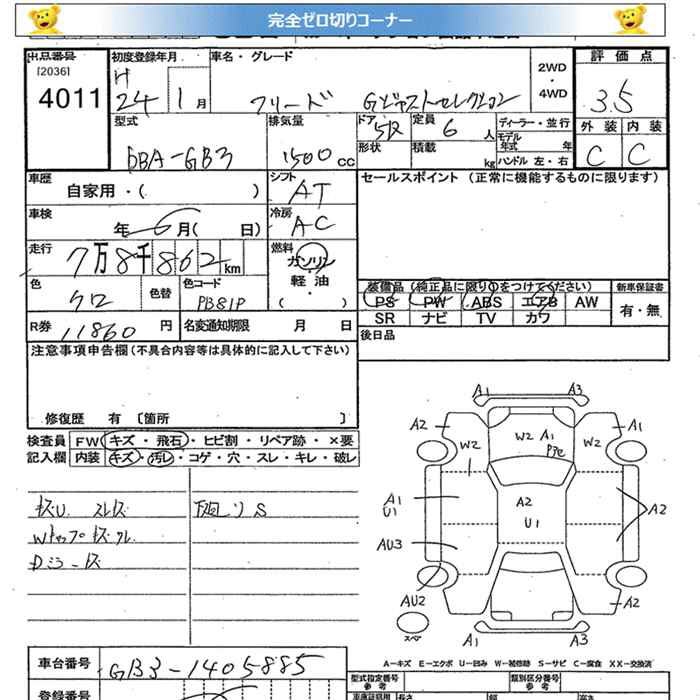 完全ゼロ切りコーナー
出品番号 初度登録年月 車名・グレード 評価点
[2036] H 2WD
4011 24 1月 フリード Gジャストセレクション ・4WD 3.5
型式 排気量 ドア 定員 ディーラー・並行 外装 内装
5D 6人 モデル年式 年
DBA-GB3 1500cc 形状 積載 kg ハンドル 左・右 C C
車歴 シフト セールスポイント (正常に機能するものに限ります)
自家用・( ) AT
車検 冷房
年 6月( 日) AC
走行 燃料
7万8千862km ガソリン
軽油
色 色替 色コード ・( ) 装備品(純正品に限り○をつけてください) 新車保証書
クロ PB81P PS PW ABS エアB AW 有・無
R券 11860円 名変通知期限 月 日 SR ナビ TV カワ
注意事項申告欄(不具合内容等は具体的に記入して下さい) 後日品
修復歴 有 [箇所 ]
検査員 FW キズ・飛石・ヒビ割・リペア跡・×要
記入欄 内装 キズ・汚レ・コゲ・穴・スレ・キレ・破レ
キズU. スレキズ 下廻りS
Wトップキズクレ
Dミラーキズ
A1 A3
A2 W2 W2 A1 W2 A1
A1 A2 A2
U1 U1
AU3
AU2 A2
スペア A1 A3
A-キズ E-エクボ U-凹み W-補修跡 S-サビ C-腐食 XX-交換済
車台番号 GB3-1405885 型式指定番号 参考 類別区分番号 参考
登録番号 長さ 幅 高さ